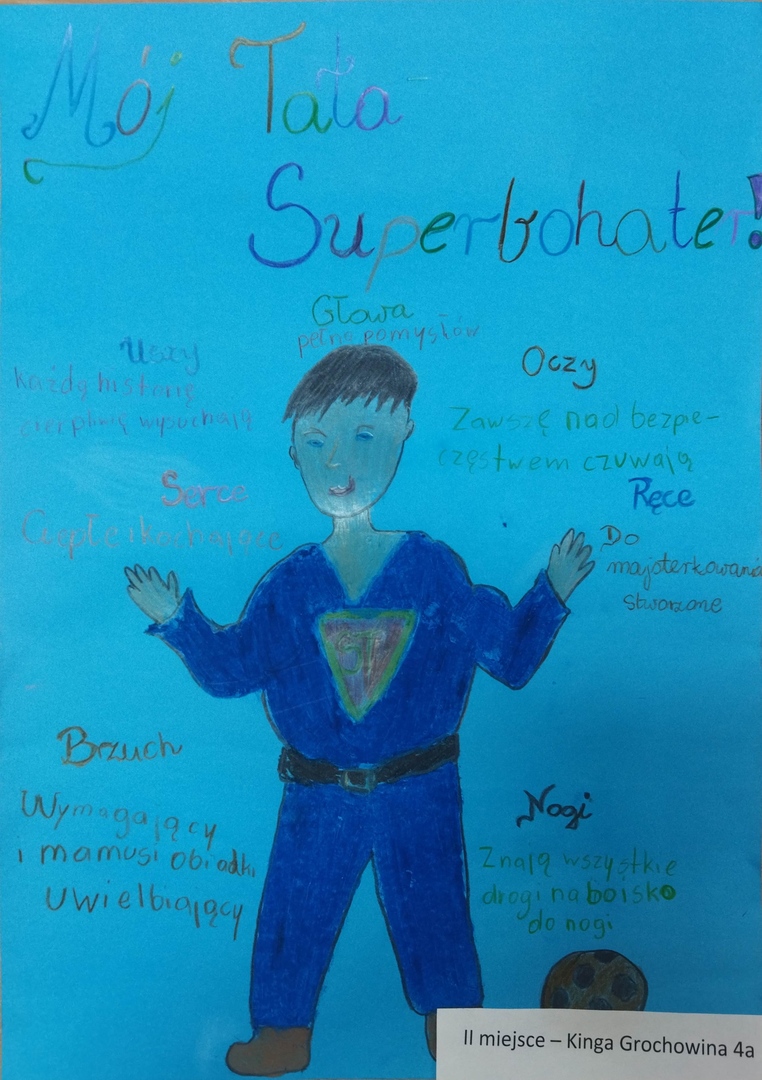 Mój Tata
Superbohater!
Głowa
pełna pomysłów
Uszy
każdą historię
cierpliwię wysuchają
Oczy
Zawszę nad bezpie-
częstwem czuwają
Serce
Ciepłe i kochające
Ręce
Do
majsterkowania
stworzone
ST
Brzuch
Wymagający
i mamusi obiadki
uwielbiający
Nogi
Znają wszystkie
drogi na boisko
do nogi
II miejsce – Kinga Grochowina 4a